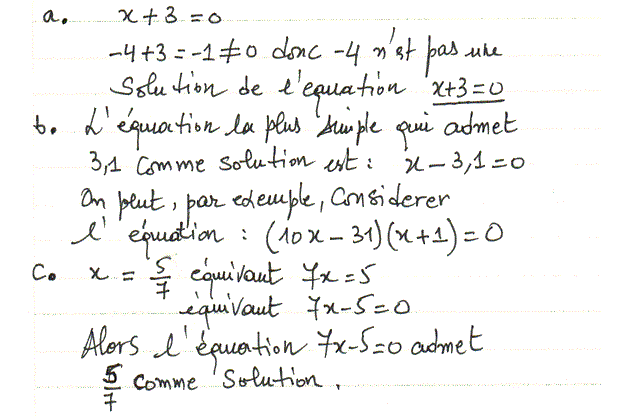 a. x + 3 = 0
-4+3 = -1 ≠ 0 donc -4 n'est pas une
Solution de l'équation x+3=0
b. L'équation la plus simple qui admet
3,1 comme solution est : x - 3,1 = 0
On peut, par exemple, Considerer
l' équation : (10x - 31)(x+1) = 0
C. x = 5/7 équivaut 7x = 5
équivaut 7x-5 = 0
Alors l'équation 7x-5=0 admet
5/7 comme Solution.